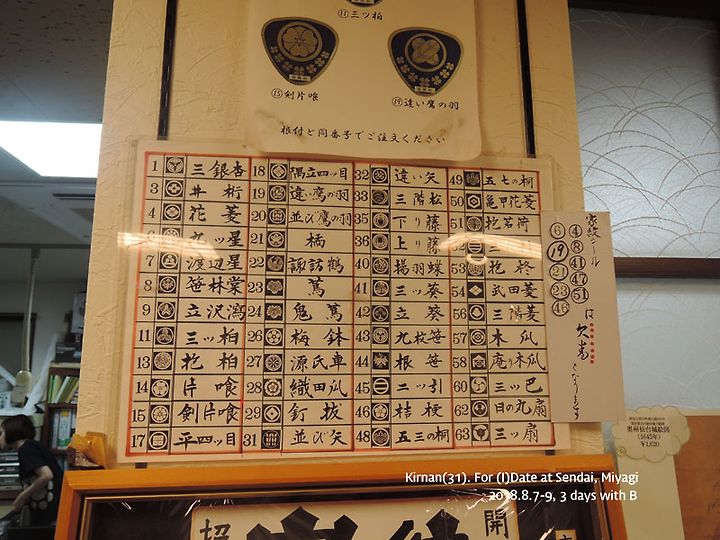 ⑪三ツ柏
⑮剣片喰
⑲違い鷹の羽
根付と同番号でご注文ください
1 三銀杏 18 隅立四ツ目 32 違い矢 49 五七の桐
3 井桁 19 違い鷹の羽 33 三階松 50 亀甲花菱
4 花菱 20 並び鷹の羽 35 下り藤 51 抱茗荷
6 九ツ星 21 橘 36 上り藤
7 渡辺星 22 諏訪鶴 40 揚羽蝶 53
8 笹林棠 23 蔦 41 三ツ葵 54 武田菱
9 立沢瀉 24 鬼蔦 42 立葵 56 三階菱
11 三ツ柏 26 梅鉢 43 九枚笹 57 木瓜
13 抱柏 27 源氏車 44 根笹 58 庵り木瓜
14 片喰 28 織田瓜 45 二ツ引 60 三ツ巴
15 剣片喰 29 釘抜 46 桔梗 62 日の丸扇
17 平四ツ目 31 並び矢 48 五三の桐 63 三ツ扇
家紋シール
④ ⑧ ㊶ ㊼ 51
⑥ ⑲ ㉑ ㉓ ㊻
は
欠番となります
奥州仙台城絵図
(1645年)
¥1,620
開
Kirnan(31). For (I)Date at Sendai, Miyagi
2018.8.7-9, 3 days with B